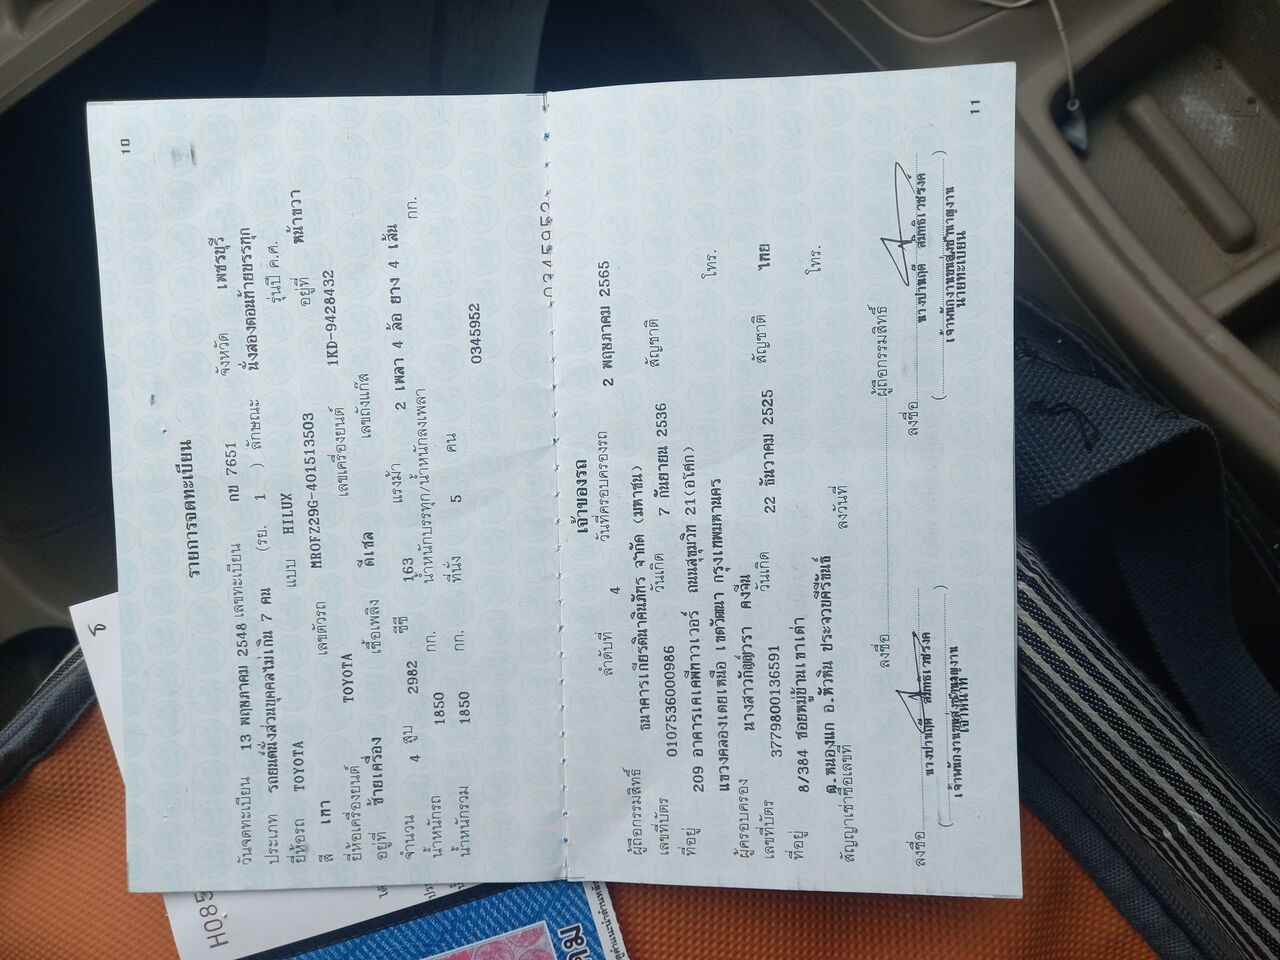 10
รายการจดทะเบียน
วันจดทะเบียน 13 พฤษภาคม 2548 เลขทะเบียน กข 7651 จังหวัด เพชรบุรี
ประเภท รถยนต์นั่งส่วนบุคคลไม่เกิน 7 คน (รย. 1 ) ลักษณะ นั่งสองตอนท้ายบรรทุก
ยี่ห้อรถ TOYOTA แบบ HILUX รุ่นปี ค.ศ.
สี เทา เลขตัวรถ MROFZ29G-401513503 อยู่ที่ หน้าขวา
ยี่ห้อเครื่องยนต์ TOYOTA เลขเครื่องยนต์ 1KD-9428432
อยู่ที่ ซ้ายเครื่อง เชื้อเพลิง ดีเซล เลขถังแก๊ส
จำนวน 4 สูบ 2982 ซีซี 163 แรงม้า 2 เพลา 4 ล้อ ยาง 4 เส้น
น้ำหนักรถ 1850 กก. น้ำหนักบรรทุก/น้ำหนักลงเพลา กก.
น้ำหนักรวม 1850 กก. ที่นั่ง 5 คน 0345952
เจ้าของรถ
ลำดับที่ 4 วันที่ครอบครองรถ 2 พฤษภาคม 2565
ผู้ถือกรรมสิทธิ์ ธนาคารเกียรตินาคินภัทร จำกัด (มหาชน)
เลขที่บัตร 0107536000986 วันเกิด 7 กันยายน 2536 สัญชาติ
ที่อยู่ 209 อาคารเคเคพีทาวเวอร์ ถนนสุขุมวิท 21(อโศก)
แขวงคลองเตยเหนือ เขตวัฒนา กรุงเทพมหานคร โทร.
ผู้ครอบครอง นางสาวกัญญ์วรา คงจีน
เลขที่บัตร 3779800136591 วันเกิด 22 ธันวาคม 2525 สัญชาติ ไทย
ที่อยู่ 8/384 ซอยหมู่บ้านเขาเต่า
ต.หนองแก อ.หัวหิน ประจวบคีรีขันธ์ โทร.
สัญญาเช่าซื้อเลขที่ ลงวันที่
ลงชื่อ ผู้ถือกรรมสิทธิ์
ลงชื่อ ลงชื่อ
นายทะเบียน
11
H085